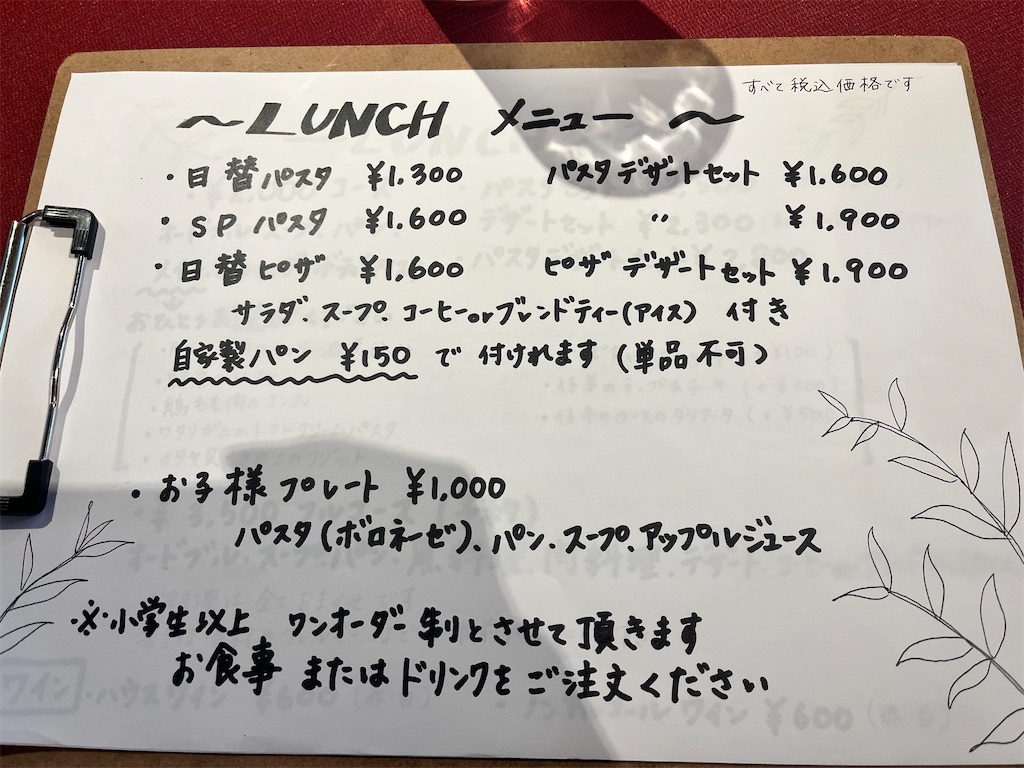 すべて税込価格です
～LUNCH メニュー～
・日替パスタ ¥1.300 パスタデザートセット ¥1.600
・SPパスタ ¥1.600 〃 ¥1.900
・日替ピザ ¥1.600 ピザデザートセット ¥1.900
サラダ、スープ、コーヒーorブレンドティー(アイス) 付き
自家製パン ¥150 で付けれます(単品不可)
・お子様プレート ¥1,000
パスタ(ボロネーゼ)、パン、スープ、アップルジュース
※小学生以上 ワンオーダー制とさせて頂きます
お食事またはドリンクをご注文ください